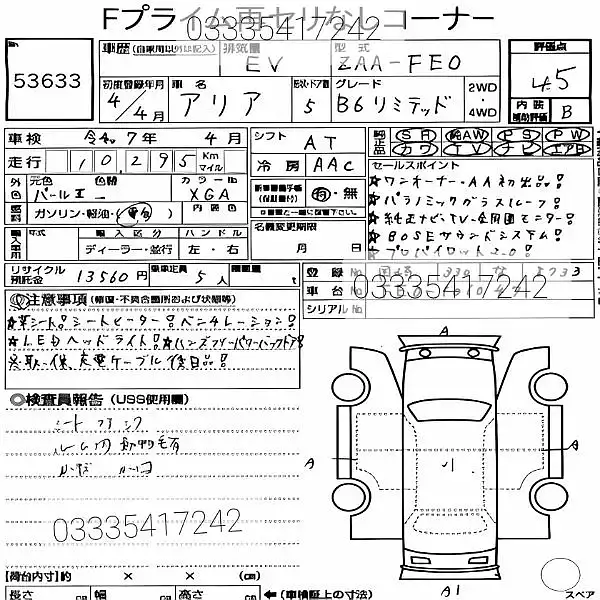 Fプライム再セリなしコーナー
03335417242
53633
車歴 (自家用以外は記入)
排気量
EV
型式
ZAA-FE0
評価点
4.5
初度登録年月
4年4月
車名
アリア
ドア数
5
グレード
B6リミテッド
2WD
・4WD
内装
補助評価
B
車検 令和7年 4月
シフト
AT
SR 純AW PS PW
カワ TV ナビ エアB
走行 10,295 Km
マイル
冷房
AAC
セールスポイント
★ワンオーナー・AA初出品!
★パノラミックガラスルーフ!
★純正ナビ・TV・全周囲モニター!
★BOSEサウンドシステム!
★プロパイロット2.0!
外色
元色
パール
色替
カラーNo
XGA
有・無
燃料
ガソリン・軽油・(電気)
内装色
名義変更期限
月 日
輸入車用
年式
輸入区分
ハンドル
ディーラー・並行
左・右
リサイクル預託金
13560円
乗車定員
5人
積載量
t
登録No
車台No
シリアルNo
03335417242
注意事項(修復・不具合箇所および状態等)
★革シート!シートヒーター!ベンチレーション!
★LEDヘッドライト!★ハンズフリーパワーバックドア!
※取・保、充電ケーブル後日品!
検査員報告(USS使用欄)
ルーム内動物毛有
03335417242
A
A
A
A1
【荷台内寸】約 × × (cm)
長さ 幅 高さ
←(車検証上の寸法)
スペア